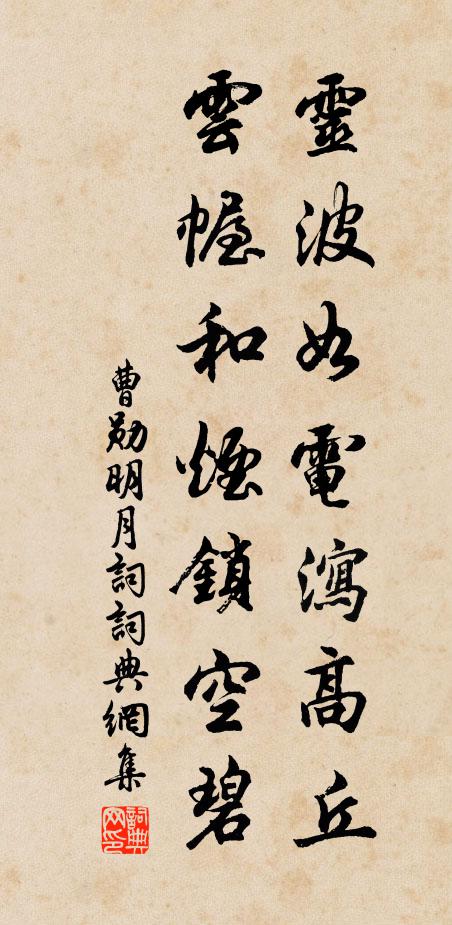 靈波如電瀉高丘
雲幄和煙鎖空碧
曹勛明月詞詞典網集
詞典网印